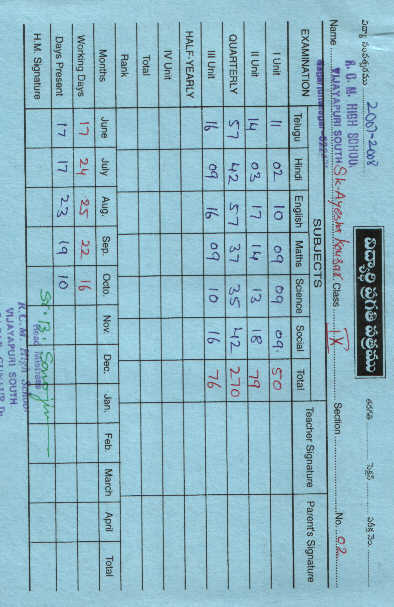 విద్యా సంవత్సరము 2007-2008 విద్యార్థి ప్రగతి పత్రము తరగతి సెక్షన్ వరుస నెం.
R. C. M. HIGH SCHOOL
VIJAYAPURI SOUTH
Name Sk. Ayesha Kousar Class IX Section No. 02
EXAMINATION SUBJECTS Teacher Signature Parent's Signature
Telugu Hindi English Maths Science Social Total
I Unit 11 02 10 09 09 09. 50
II Unit 14 03 17 14 13 18 79
QUARTERLY 57 42 57 37 35 42 270
III Unit 16 09 16 09 10 16 76
HALF-YEARLY
IV Unit
Total
Rank
Months June July Aug. Sep. Octo. Nov. Dec. Jan. Feb March April Total
Working Days 17 24 25 22 16
Days Present 17 17 23 19 10
H.M. Signature
R.C.M. High School
VIJAYAPURI SOUTH